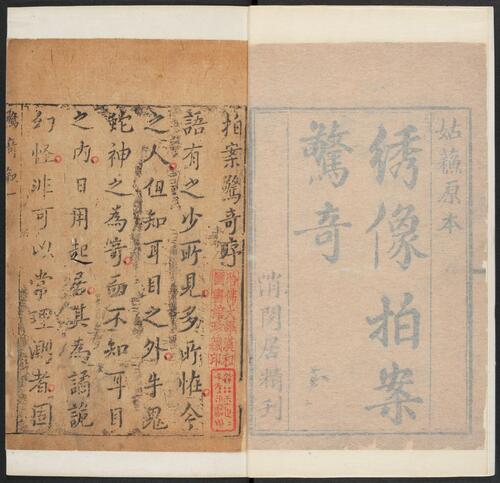 姑蘇原本
綉像拍案
驚奇
消閑居精刊
拍案驚奇序
語有之少所見多所怪今
之人但知耳目之外牛鬼
蛇神之為奇而不知耳目
之內日用起居其為譎詭
幻怪非可以常理測者固
驚奇
哈佛大學漢和
圖書館珍藏印